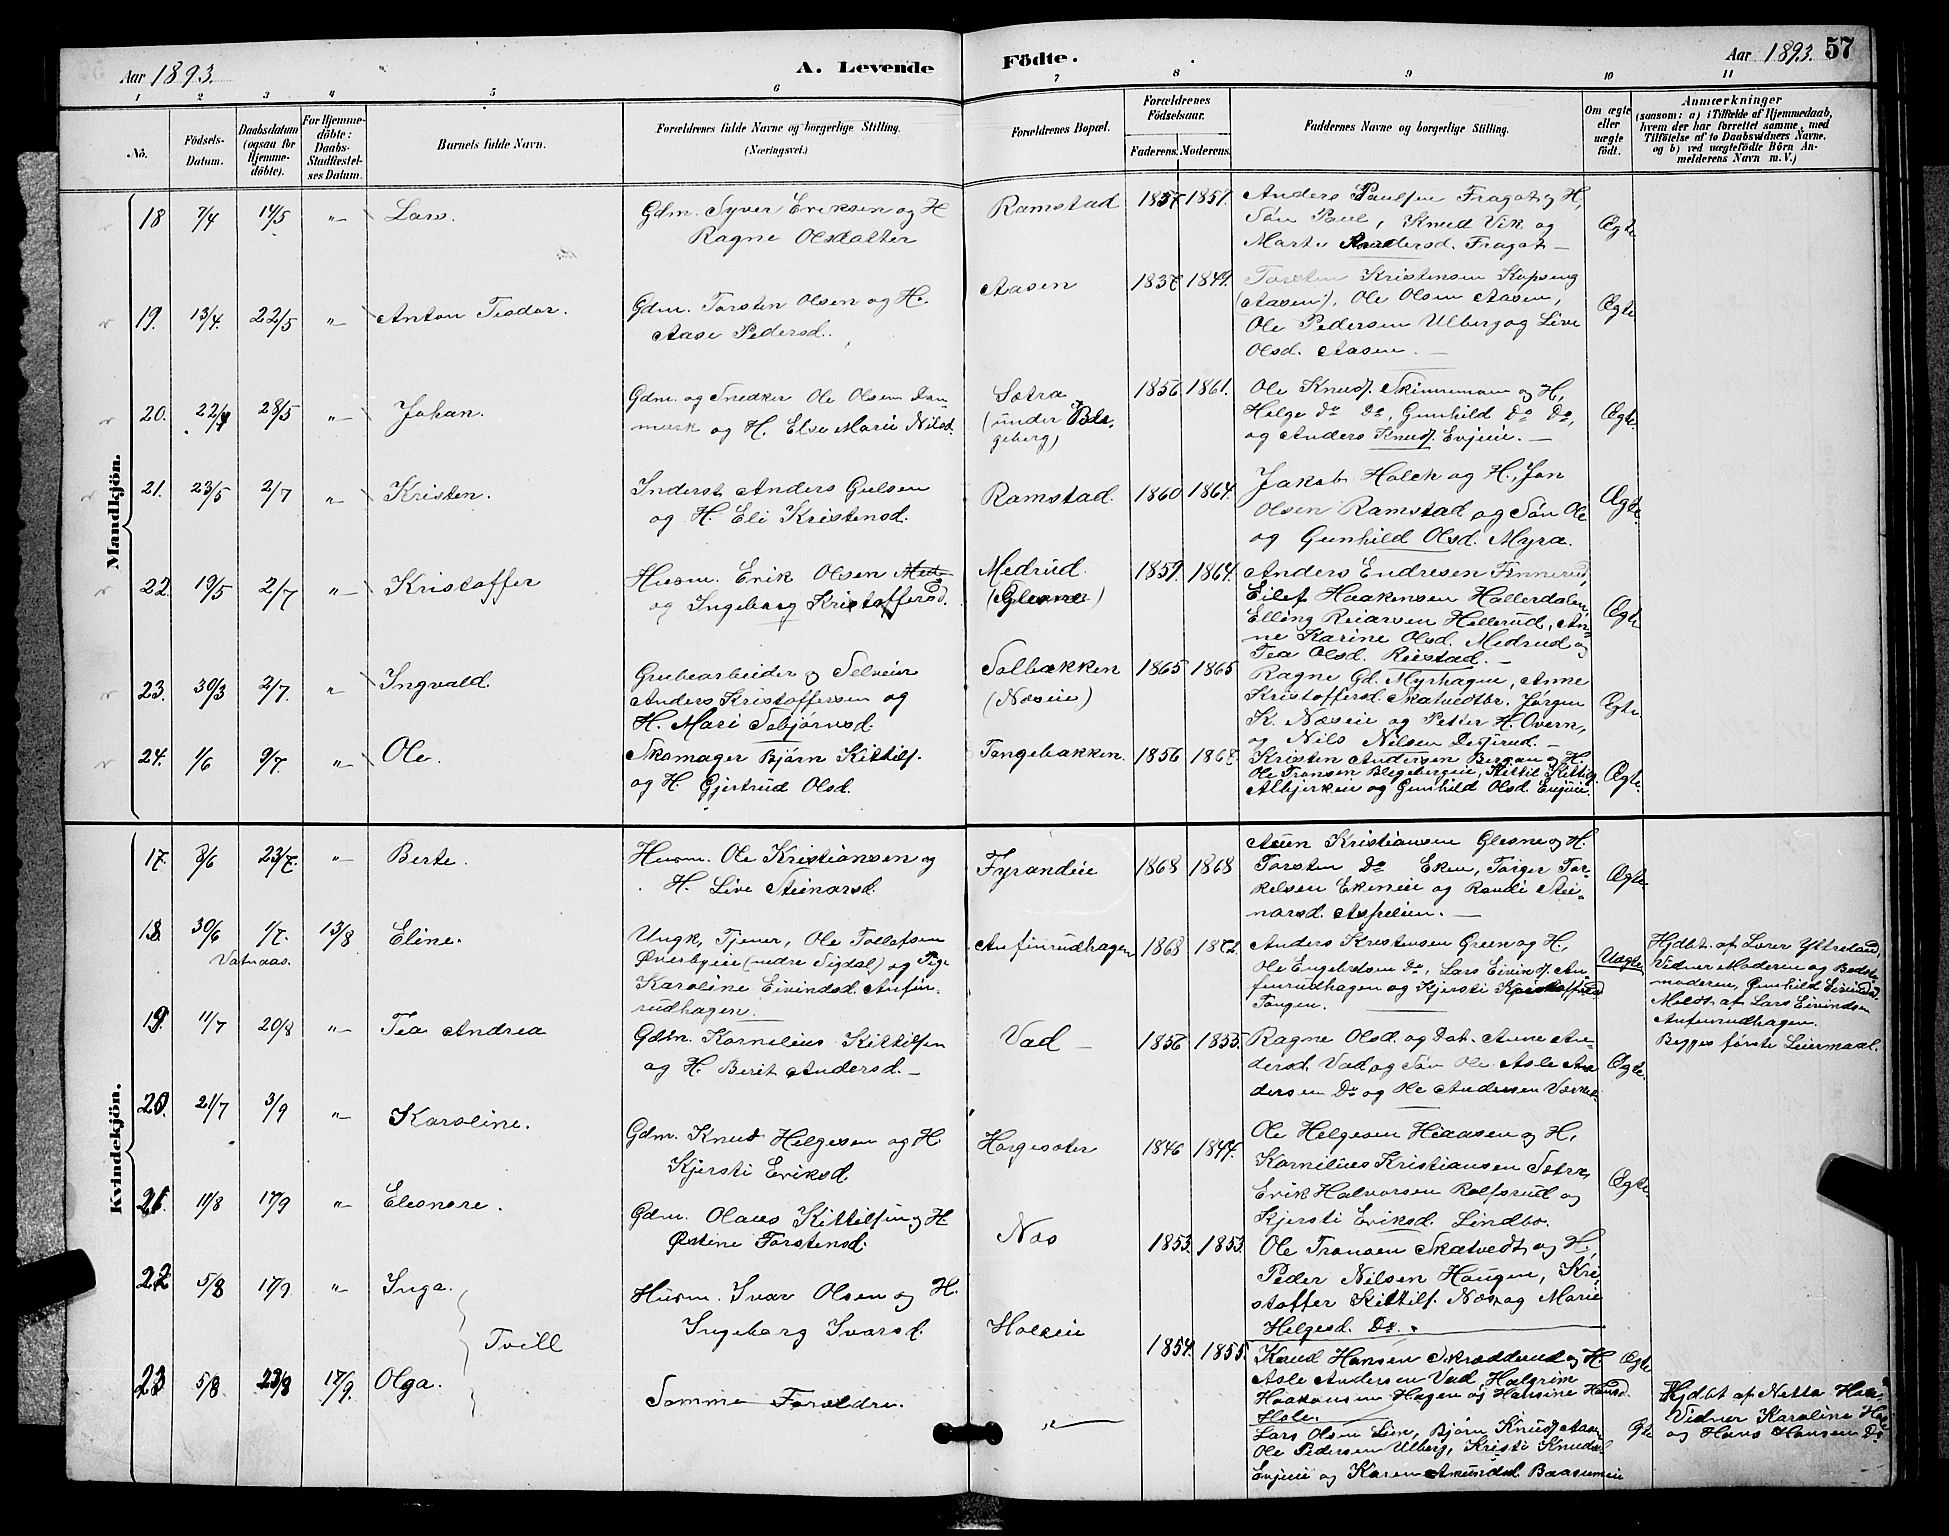 Aar 1893.
A. Levende
Födte.
Aar 1893. 57
1 2 3 4 5 6 7 8 9 10 11
No.
Födsels-
Datum.
Daabsdatum
(ogsaa for
Hjemme-
döbte).
For Hjemme-
döbte:
Daabs-
Stadfæstel-
ses Datum.
Barnets fulde Navn.
Forældrenes fulde Navne og borgerlige Stilling.
(Næringsvei.)
Forældrenes Bopæl.
Forældrenes
Födselsaar.
Faderens. Moderens.
Faddernes Navne og borgerlige Stilling.
Om ægte
eller
uægte
födt.
Anmærkninger
(saasom: a) i Tilfælde af Hjemmedaab,
hvem der har forrettet samme, med
Tilföielse af to Daabsvidners Navne,
og b) ved uægtefödte Börn An-
melderens Navn m. V.)
Mandkjön.
18 7/4 14/5 "— Lars.
Gdm. Syver Eriksen og H
Ragne Olsdatter
Ramstad 1857 1857.
Anders Paulsen Fragot og H,
Søn Paul, Knud Vik og
Marte Andersd. Fragot —
Ægte.
19. 13/4 22/5 "— Anton Teodor.
Gdm. Torsten Olsen og H.
Aase Pedersd.
Aasen 1837 1844.
Torsten Kristensen Kopseng
(Aasen), Ole Olsen Aasen,
Ole Pedersen Ulberg og Live
Olsd. Aasen. —
Ægte
20. 22/4 28/5 "— Johan.
Gdm. og Snedker Ole Olsen Dan-
mark og H. Else Marie Nilsd.
Sætra
(under Ble-
geberg)
1856 1861.
Ole Knuds. Skinneman og H,
Helge Do Do, Gunhild Do Do,
og Anders Knuds. Evjeie. —
Ægte.
21. 23/5 2/7 " Kristen.
Inderst Anders Gulsen
og H. Eli Kristensd.
Ramstad. 1860 1864.
Jakob Holck og H, Jon
Olsen Ramstad og Søn Ole
og Gunhild Olsd. Myra.
Ægte.
22. 19/5 2/7 "— Kristoffer
Husm. Erik Olsen
og Ingeborg Kristoffersd.
Medrud
(Glesne)
1857. 1864.
Anders Endresen Finnerud,
Eilef Haakensen Hallerdalen,
Elling Reiarsen Hellerud, An-
ne Karine Olsd. Medrud og
Tea Olsd. Riistad. —
Ægte
23. 30/3 2/7. " Ingvald.
Grubearbeider og Selveier
Anders Kristoffersen og
H. Mari Sebjørnsd.
Solbakken
(Næseie)
1865 1865
Ragne Gd. Myrhagen, Anne
Kristoffersd. Skatvedtbr. Jørgen
K. Næseie og Petter H. Overn,
og Nils Nilsen —
Ægte.
24. 1/6 9/7. "— Ole.
Skomager Bjørn Kittils.
og H. Gjertrud Olsd.
Tangebakken. 1856 1868.
Kristen Andersen Bergan og H.
Ole Tronsen Blegebergeie, Kittil Kittils.
Albjerkeie og Gunhild Olsd. Evjeie.
Ægte.
Kvindekjön.
17. 8/6 23/7. "— Berte.
Husm. Ole Kristiansen og
H. Live Steinarsd.
Fyrandeie 1868 1868
Kristiansen Glesne og H.
Torsten Do Eken, Torger Tor-
kelsen Ekeneie og Randi Stei-
narsd. Aspelien. —
Ægte
18. 30/6 1/7. 13/8 Eline.
Vatnaas.
Ungk, Tjener, Ole Tollefsen
Øverbyeie (nedre Sigdal) og Pige
Karoline Eivindsd. Anfin-
rudhagen.
Anfinrudhagen 1868 1872.
Anders Kristensen Green og H,
Ole Engebretsen Do, Lars Eivinds. An-
finrudhagen og Kjersti Kristoffersd
Tangen. —
Uægte
Hjdbt. af Lærer Ytteland,
Vidner Moderen og Bedste-
moderen, Gunhild Eivindsd.
Meldt af Lars Eivindsen
Anfinrudhagen.
Begges første Leiermaal.
19. 11/7 20/8 "— Tea Andrea
Gdm. Kornelius Kittilsen
og H. Berit Andersd. —
Vad — 1856 1855.
Ragne Olsd. og Dat. Anne An-
dersd. Vad og Søn Ole Asle An-
dersen Do og Ole Andersen
Ægte.
20. 21/7 3/9 "— Karoline.
Gdm. Knud Helgesen og H
Kjersti Eriksd
Horgesæter 1846 1847.
Ole Helgesen Hiaasen og H,
Kornelius Kristiansen Sætra,
Erik Halvorsen Rolfsrud og
Kjersti Eriksd. Lindbo.
Ægte
21. 11/8 17/9 "— Eleonore.
Gdm. Olaus Kittilsen og H
Østine Torstensd.
Næs 1853 1853.
Ole Tronsen Skatvedt og H,
Peder Nilsen Haugen, Kri-
stoffer Kittils. Næs og Marie
Helgesd. Do.
22 5/8 17/9 "— Inga.
Tvill
Husm. Ivar Olsen og H.
Ingeborg Ivarsd.
Holeeie 1854. 1855.
Knud Hansen Skredderud og H.
Asle Andersen Vad, Halgrim
Haakonsen Hagen og Hansine Hansd
Hole. —
Ægte
23 5/8 23/8 17/9. Olga.
Samme Forældre.
"—
Lars Olsen Lien, Bjørn Knuds. Aasen
Ole Pedersen Ulberg, Kristi Knudsd.
Evjeie og Karen Amundsd. Braasumeie
Ægte
Hjdbt af Netta
Vidner Karoline
og Hans Hansen Do